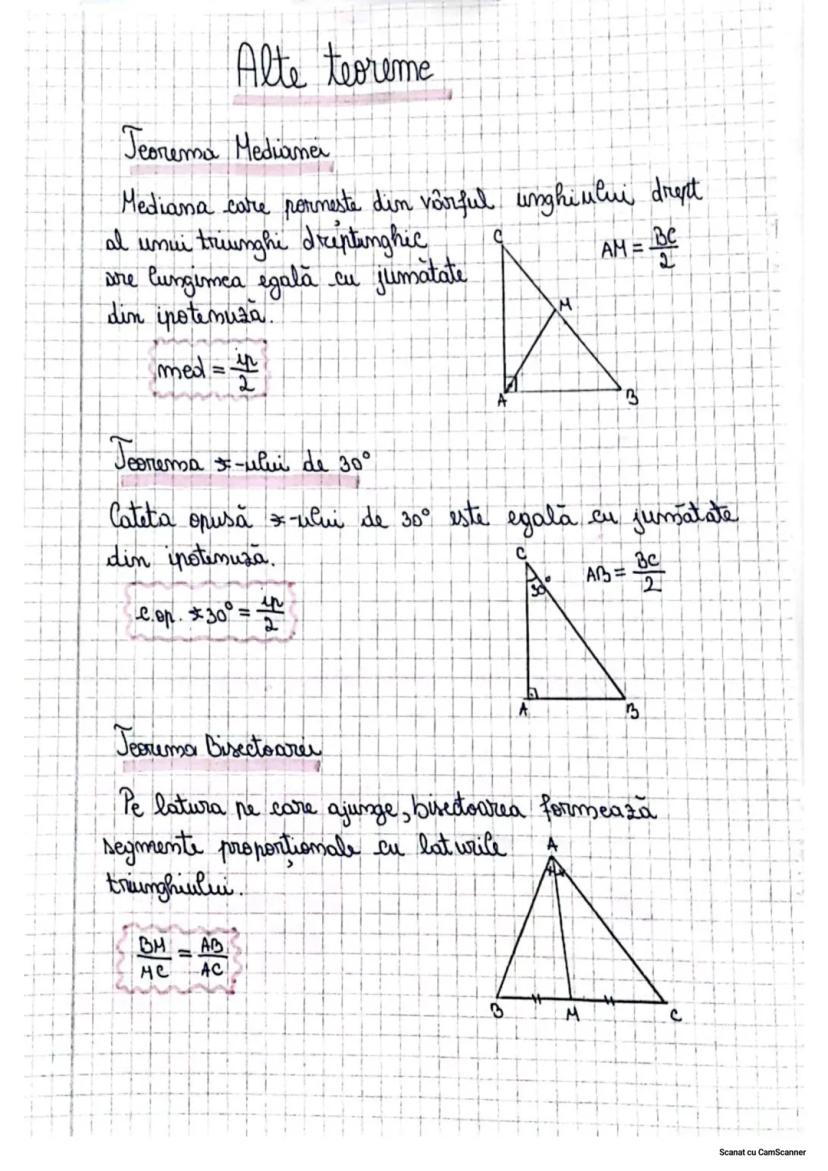 Alte teoreme
Teorema Medianei
Mediana care pornește din vârful unghiului drept
al unui triunghi dreptunghic
are lungimea egală cu jumătate
din ipotenuză.
AM = BC/2
C
M
A
B
med = ip/2
Teorema ∢-ului de 30°
Cateta opusă ∢-ului de 30° este egală cu jumătate
din ipotenuză.
C
30°
AB = BC/2
c.op. ∢30° = ip/2
A
B
Teorema Bisectoarei
Pe latura pe care ajunge, bisectoarea formează
segmente proporționale cu laturile
triunghiului.
A
BM/MC = AB/AC
B
M
C
Scanat cu CamScanner